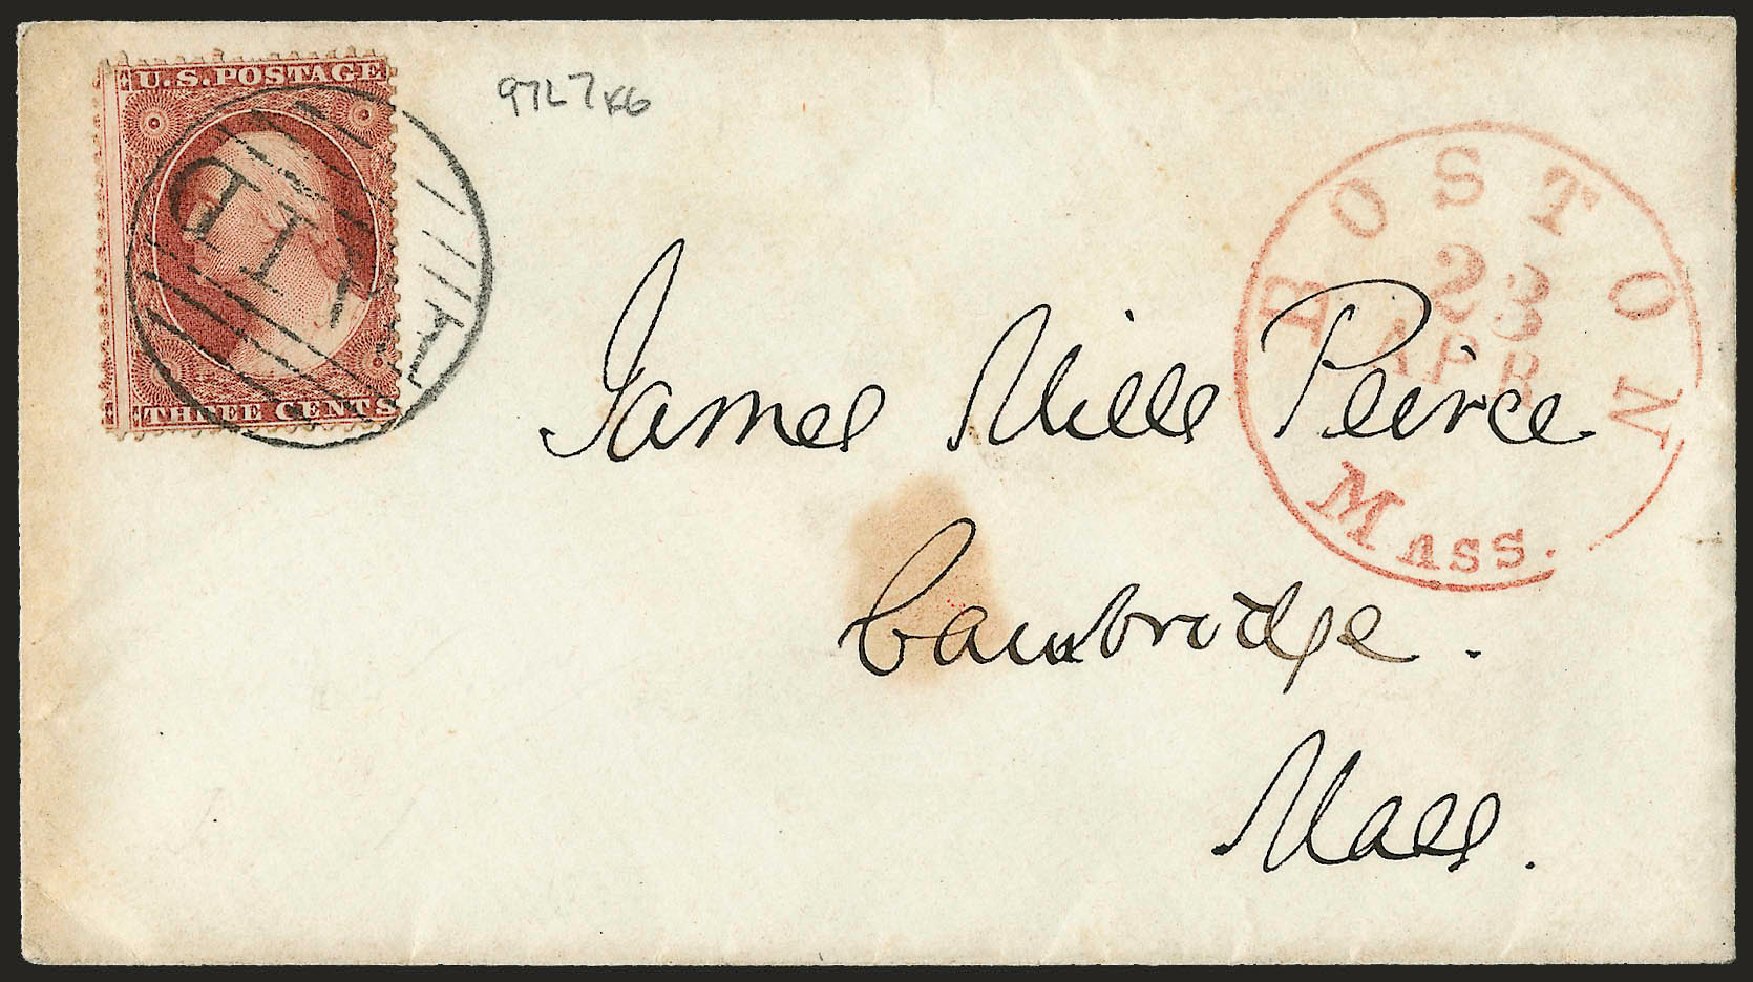 U.S. POSTAGE
PAID
THREE CENTS
97L7
BOSTON
23
APR
Mass.
James Mills Peirce
Cambridge.
Mass.